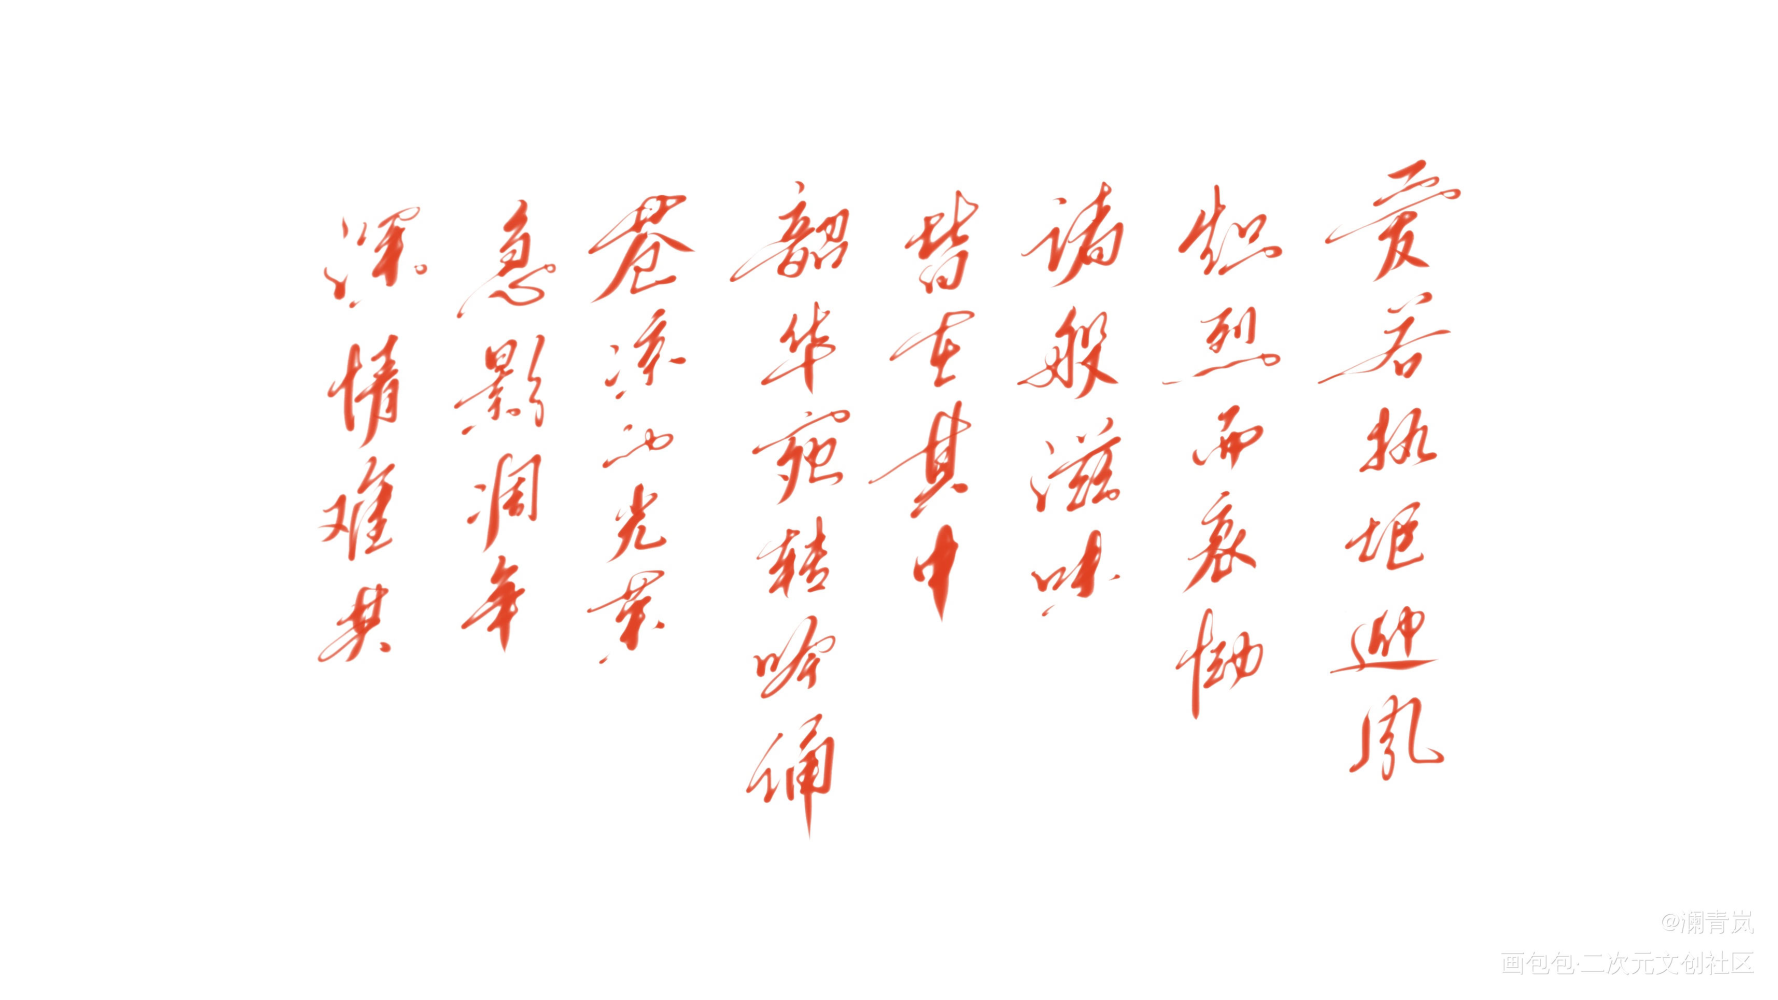 爱若执炬迎风
炽烈而哀恸
诸般滋味
皆在其中
韶华宛转吟诵
苍凉的光荣
急影凋年
深情难共
@澜青岚
画包包·二次元文创社区